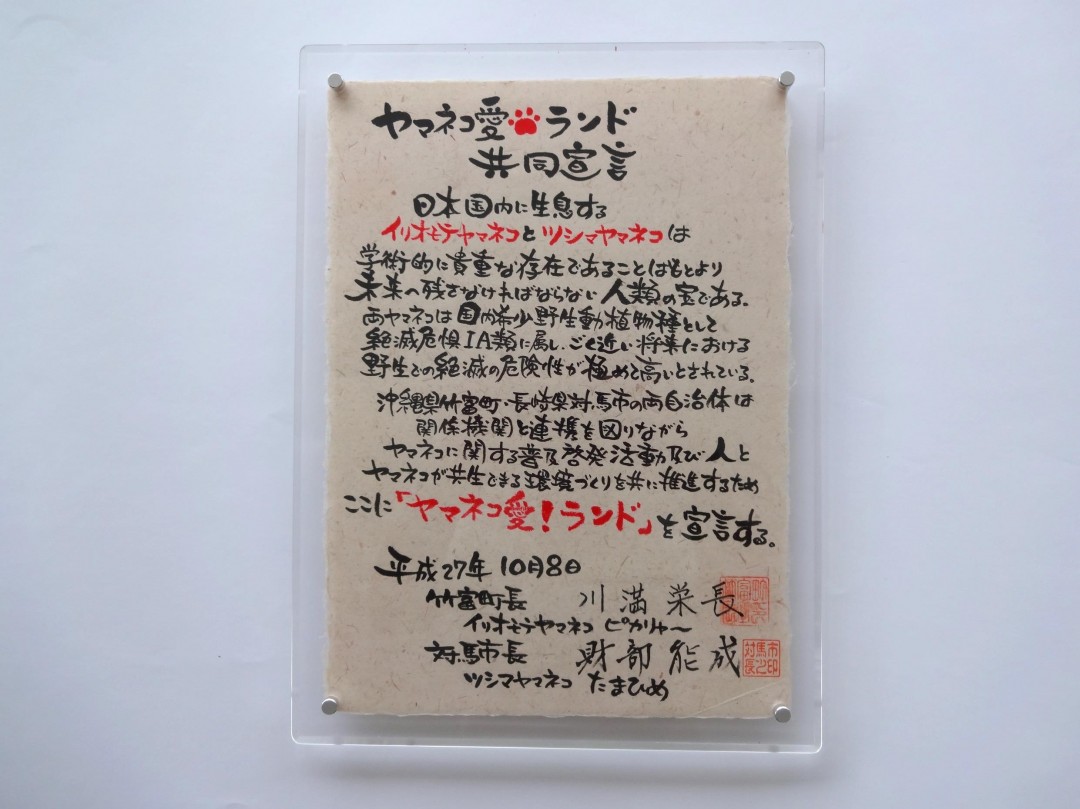 ヤマネコ愛ランド
共同宣言
日本国内に生息する
イリオモテヤマネコとツシマヤマネコは
学術的に貴重な存在であることはもとより
未来へ残さなければならない人類の宝である。
両ヤマネコは国内希少野生動植物種として
絶滅危惧IA類に属し、ごく近い将来における
野生での絶滅の危険性が極めて高いとされている。
沖縄県竹富町・長崎県対馬市の両自治体は
関係機関と連携を図りながら
ヤマネコに関する普及啓発活動及び人と
ヤマネコが共生できる環境づくりを共に推進するため
ここに「ヤマネコ愛!ランド」を宣言する。
平成27年10月8日
竹富町長 川満栄長
イリオモテヤマネコ ピカリャ〜
対馬市長 財部能成
対馬市長之印
ツシマヤマネコ たまひめ